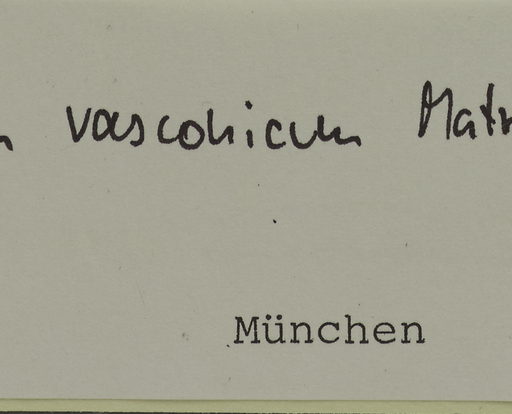 vasconicum Math
München